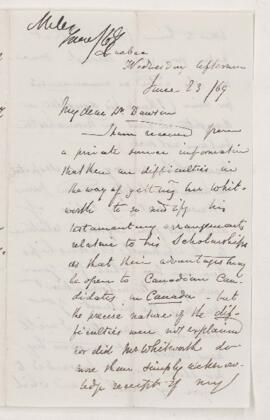 Miles
June/69
Quebec
Wednesday afternoon
June 23/69
My dear Dr Dawson
I have received from
a private source information
that there are difficulties in
the way of getting Mr Whit-
worth to so modify his
testamentary arrangements
relative to his Scholarships
as that their advantages may
be open to Canadian Can-
didates in Canada - but
the precise nature of the dif-
ficulties were not explained
nor did Mr Whitworth do
more than simply acknow-
ledge receipt of my